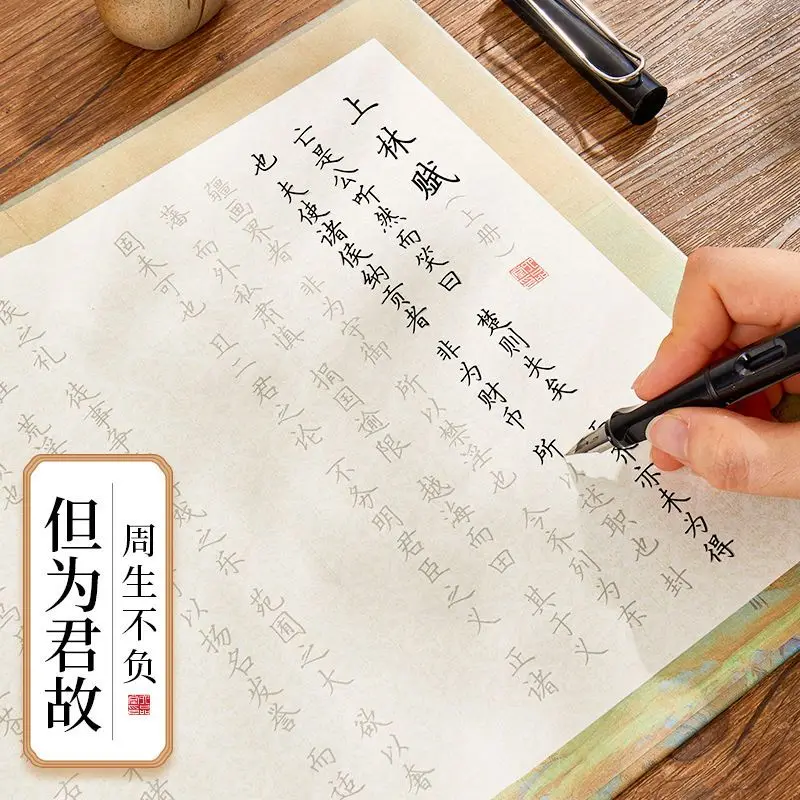 上林赋(上册)
亡是公听然而笑曰 楚则失矣 亦未为得
也 夫使诸侯纳贡者 非为财币 所以述职也 封
疆画界者 非为守御 所以禁淫也 今齐列为东
藩 而外私肃慎 捐国逾限 越海而田 其于义
固未可也 且二君之论 不务明君臣之义 正诸
侯之礼 徒事争 戏之乐 苑囿之大 欲以奢
荒淫 以扬名发誉 而适
周生不负
但为君故